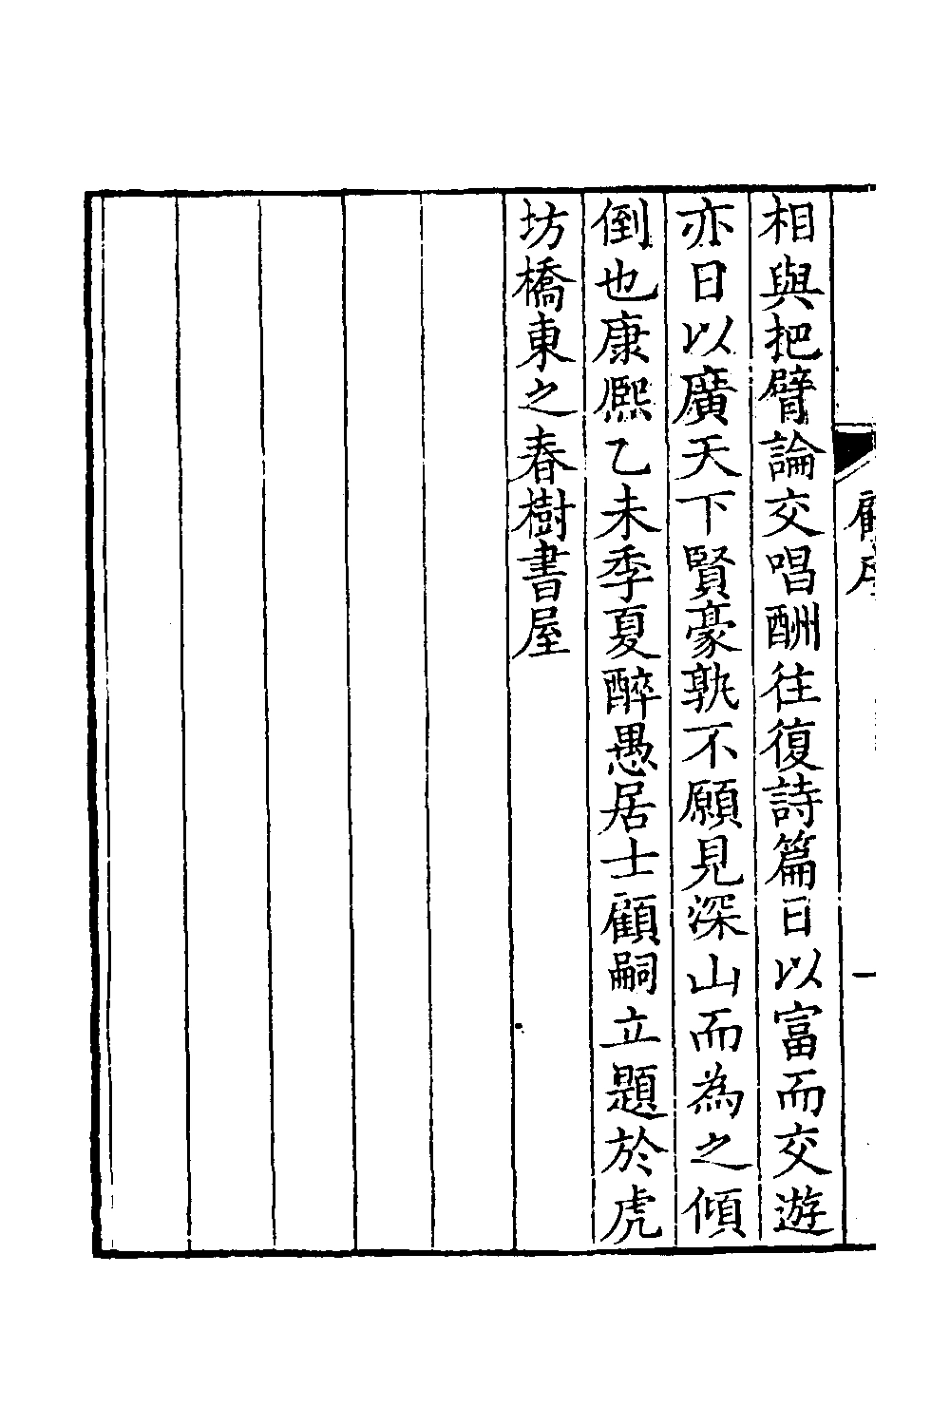 顧序
一
相與把臂論交唱酬往復詩篇日以富而交遊
亦日以廣天下賢豪孰不願見深山而為之傾
倒也康熙乙未季夏醉愚居士顧嗣立題於虎
坊橋東之春樹書屋